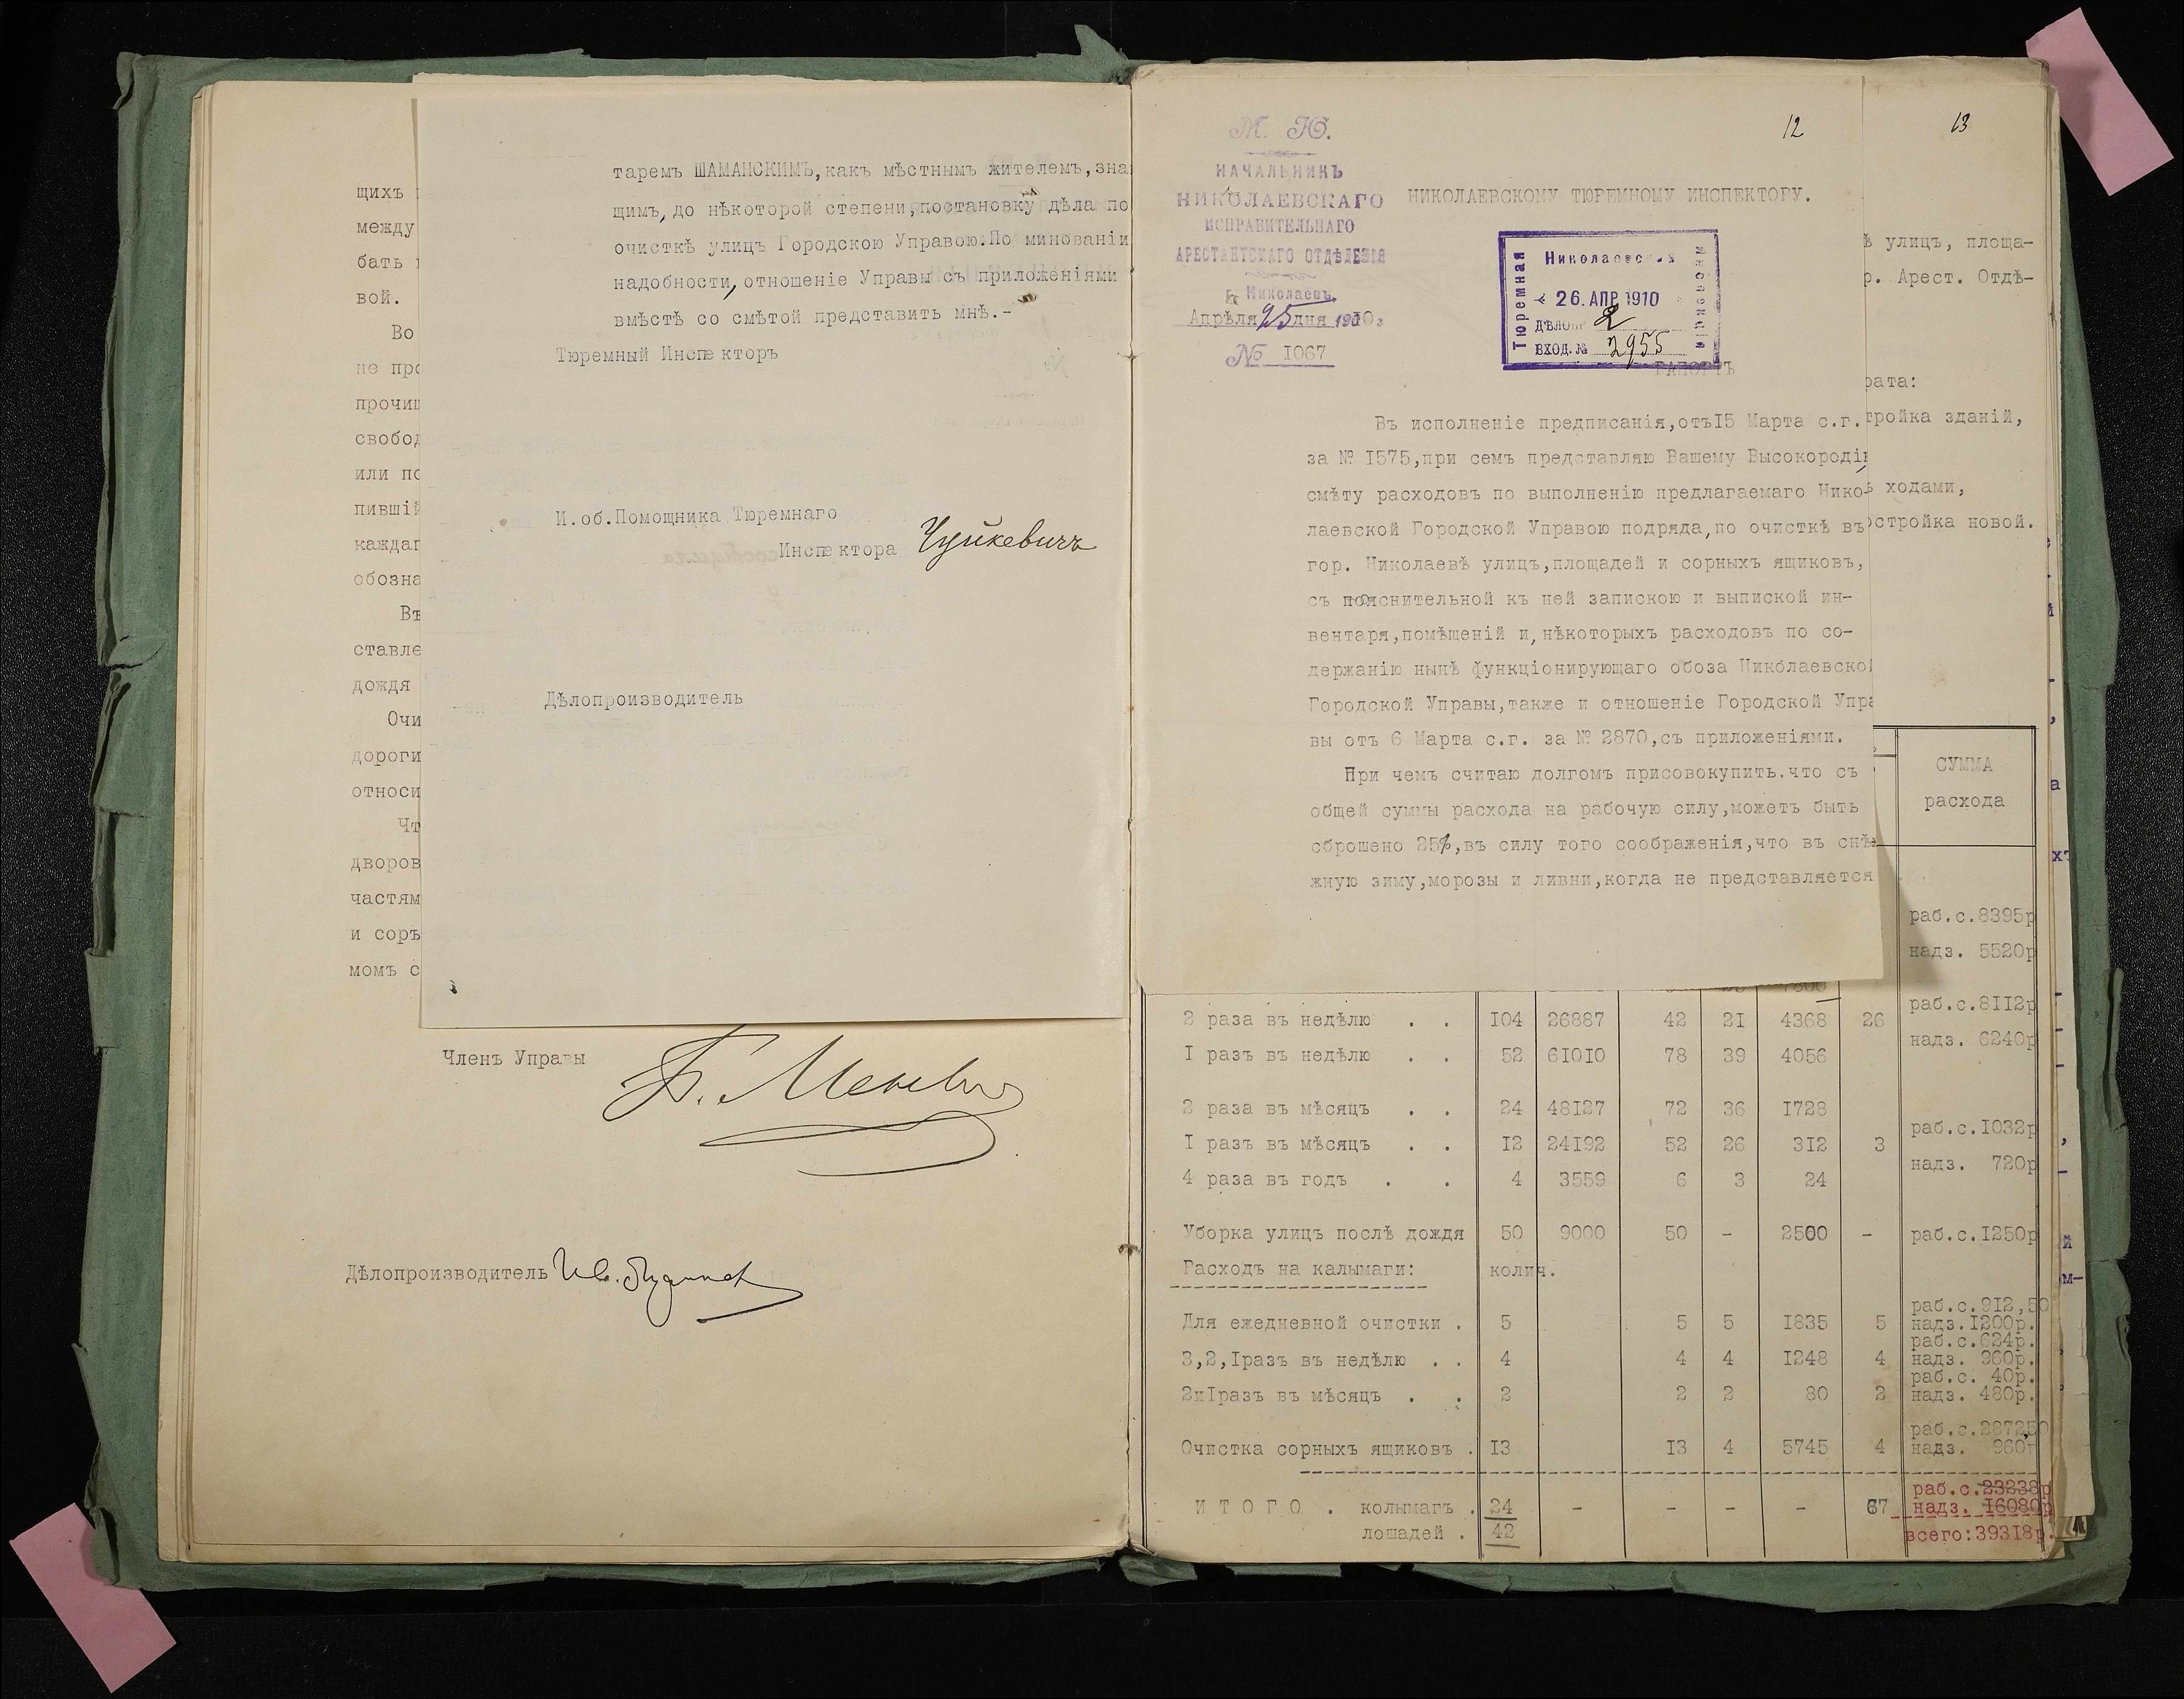 щихъ
между
бать
вой.
Во
не про
прочищ
свобод
или по
пившій
каждаг
обозна
Въ
ставле
дождя
Очи
дороги
относи
Чт
дворов
частям
и соръ
момъ с
Членъ Управы
Дѣлопроизводитель
таремъ ШАМАНСКИМЪ,какъ мѣстнымъ жителемъ,зна
щимъ, до нѣкоторой степени,постановку дѣла по
очисткѣ улицъ Городскою Управою.По минованіи
надобности, отношеніе Управы съ приложеніями
вмѣстѣ со смѣтой представить мнѣ.-
Тюремный Инспекторъ
И.об.Помощника Тюремнаго
Инспектора Чуйкевичъ
Дѣлопроизводитель
12
М. Ю.
НАЧАЛЬНИКЪ
НИКОЛАЕВСКАГО
ИСПРАВИТЕЛЬНАГО
АРЕСТАНТСКАГО ОТДѢЛЕНІЯ
г. Николаевъ
Апрѣля 25 дня 1910г
№ I067
НИКОЛАЕВСКОМУ ТЮРЕМНОМУ ИНСПЕКТОРУ.
Тюремная
Николаевская
26.АПР 1910
ДѢЛО № 2
ВХОД.№ 2955
Инспекція
РАПОРТЪ
Въ исполненіе предписанія,отъI5 Марта с.г.
за № I575,при семъ представляю Вашему Высокородію
смѣту расходовъ по выполненію предлагаемаго Нико-
лаевской Городской Управою подряда,по очисткѣ въ
гор. Николаевѣ улицъ,площадей и сорныхъ ящиковъ,
съ пояснительной къ ней запискою и выпиской ин-
вентаря,помѣщеній и,нѣкоторыхъ расходовъ по со-
держанію нынѣ функціонирующаго обоза Николаевской
Городской Управы,также и отношеніе Городской Упра
вы отъ 6 Марта с.г. за № 2870,съ приложеніями.
При чемъ считаю долгомъ присовокупить.что съ
общей суммы расхода на рабочую силу,можетъ быть
сброшено 25%,въ силу того соображенія,что въ снѣ
жную зиму,морозы и ливни,когда не представляется
13
ѣ улицъ, площа-
р. Арест. Отдѣ-
рата:
тройка зданій,
ъ ходами,
остройка новой.
СУММА
расхода
раб.с.8395р
надз. 5520р
раб.с.8II2р
2 раза въ недѣлю . . I04 26887 42 2I 4368 26
надз. 6240р
I разъ въ недѣлю . . 52 6I0I0 78 39 4056
2 раза въ мѣсяцъ . . 24 48I27 72 36 I728
раб.с.I032р
I разъ въ мѣсяцъ . . I2 24I92 52 26 3I2 3
надз. 720р
4 раза въ годъ . . 4 3559 6 3 24
Уборка улицъ послѣ дождя 50 9000 50 - 2500 - раб.с.I250р
Расходъ на калымаги: колич.
раб.с.9I2,50
Для ежедневной очистки . 5 5 5 I835 5 надз.I200р.
раб.с.624р.
3,2,Iразъ въ недѣлю . . 4 4 4 I248 4 надз. 960р.
раб.с. 40р.
2иIразъ въ мѣсяцъ . . 2 2 2 80 2 надз. 480р.
раб.с.287250
Очистка сорныхъ ящиковъ . I3 I3 4 5745 4 надз. 960р
раб.с.23238р
И Т О Г О . колымагъ . 24 - - - - 67 надз. I6080р
лошадей . 42 всего:393I8р.